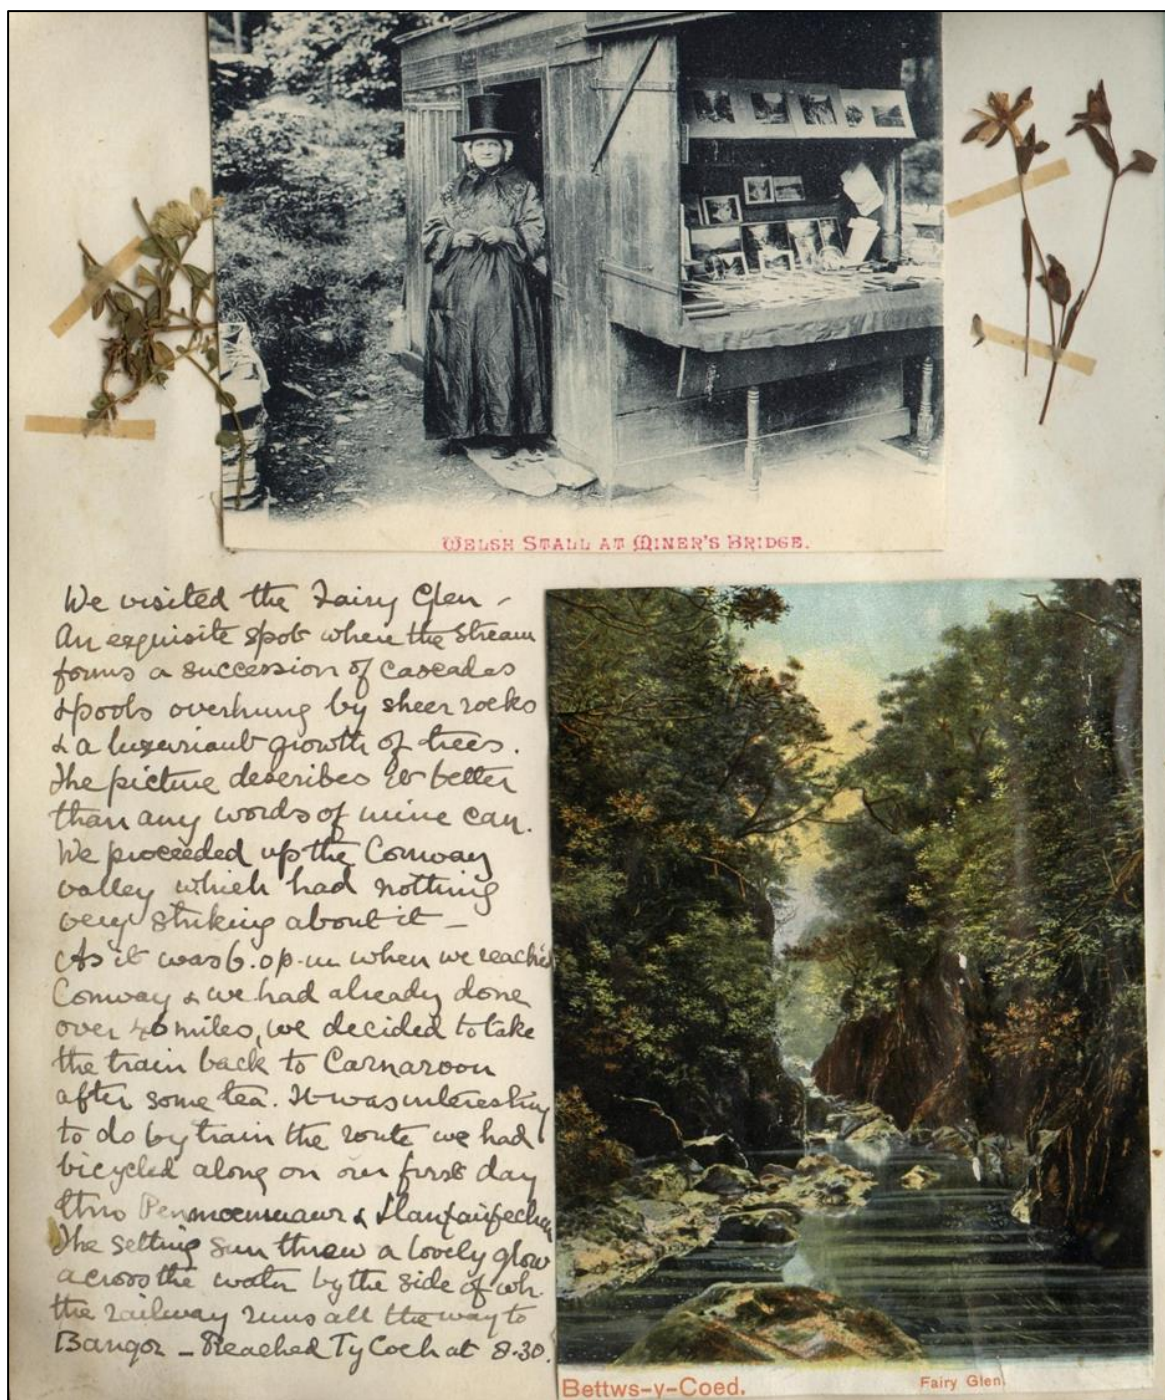 WELSH STALL AT MINER'S BRIDGE.
We visited the Fairy Glen -
An exquisite spot where the stream
forms a succession of cascades
& pools overhung by sheer rocks
& a luxuriant growth of trees.
The picture describes it better
than any words of mine can.
We proceeded up the Conway
valley which had nothing
very striking about it -
As it was 6.0 p.m when we reached
Conway & we had already done
over 40 miles, we decided to take
the train back to Carnarvon
after some tea. It was interesting
to do by train the route we had
bicycled along on our first day
thro Penmaenmawr & Llanfairfechan
The setting sun threw a lovely glow
across the water by the side of wh.
the railway runs all the way to
Bangor - Reached Ty Coch at 8.30.
Bettws-y-Coed.
Fairy Glen.